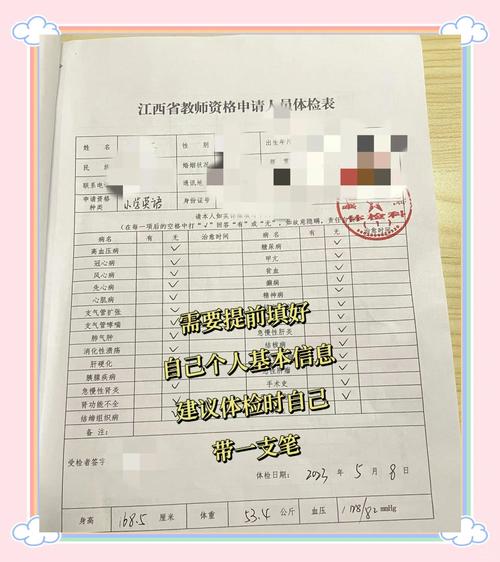 江西省教师资格申请人员体检表
姓名 性别 出生年月
民族 婚姻状况
联系电话 通讯地
申请资格种类 小学英语 身份证号
体检科
(1)
请本人如实
(在每一项后的空格中打"√"回答"有"或"无",如故意隐瞒,责任自
病名 有 无 治愈时间 病名 有 无 治愈时间
高血压病 √ 糖尿病 √
冠心病 √ 甲亢 √
风心病 √ 贫血 √
先心病 √ 癫痫 √
心肌病 √ 精神病 √
支气管扩张 √
支气管哮喘 √
肺气肿 急慢性肝炎 √
消化性溃疡 结核病
肝硬化
胰腺疾病 √
急慢性肾炎 √ 手术史 √
肾功能不全
结缔组织病 √
备注:
需要提前填好
自己个人基本信息
建议体检时自己
带一支笔
受检者签字
体检日期: 2023 年 5 月 8 日
身高 168.5 厘米 体重 53.4 公斤 血压 /82 mmHg